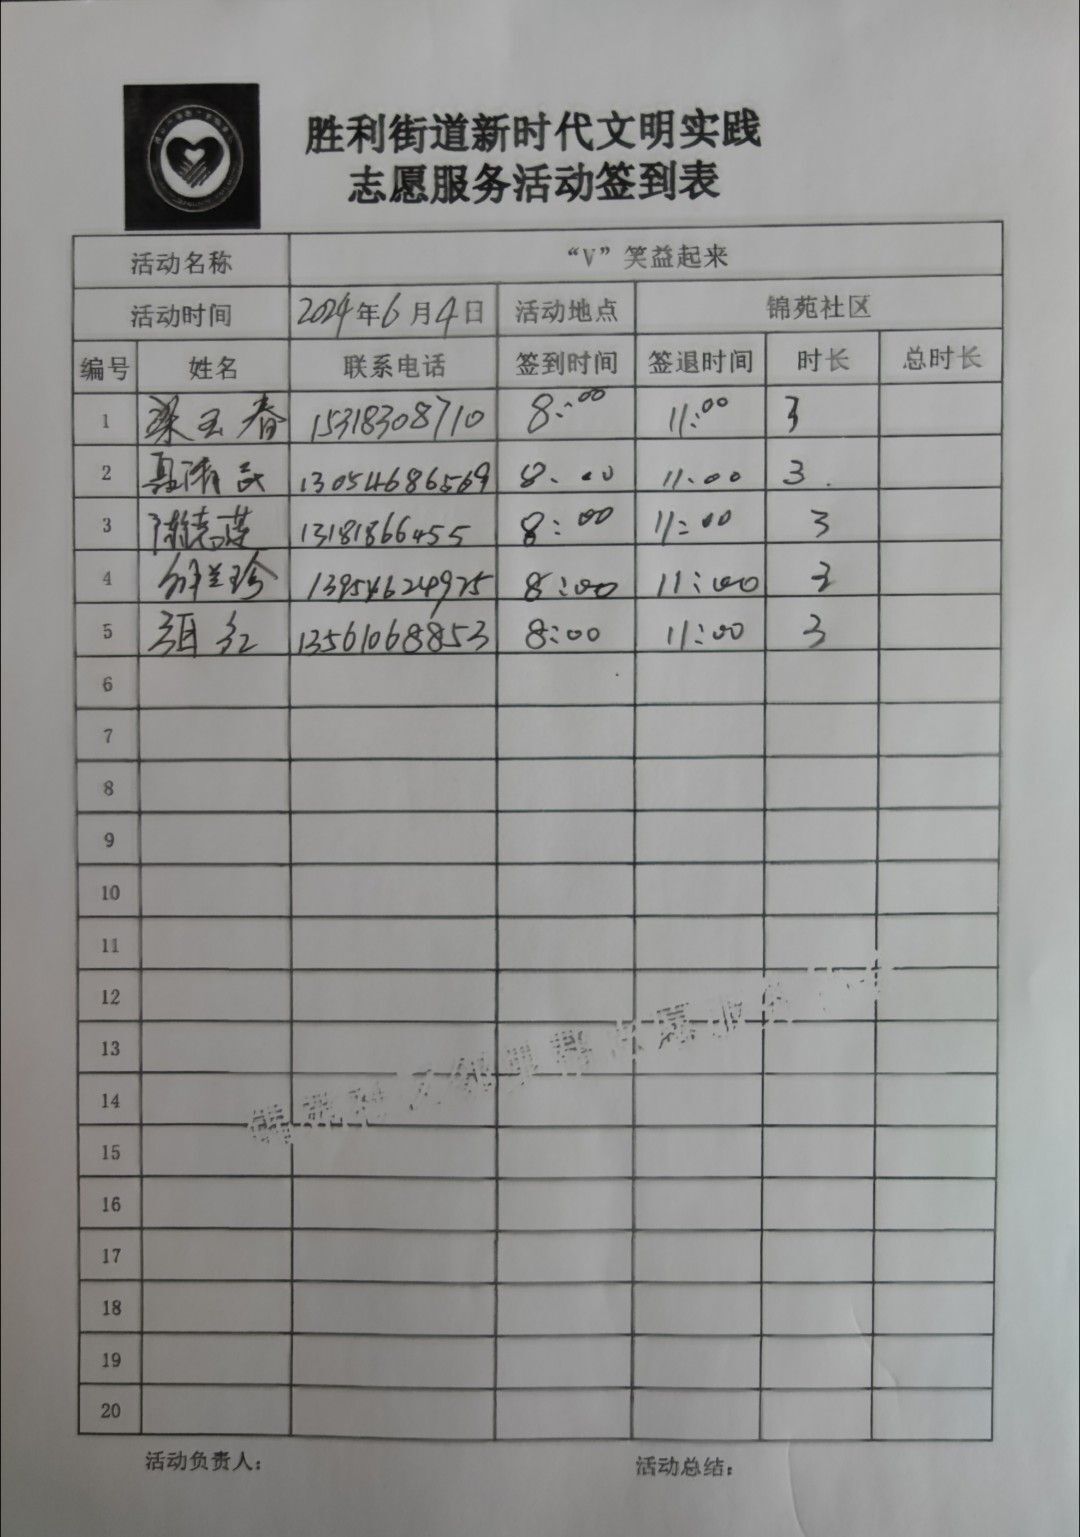 胜利街道新时代文明实践
志愿服务活动签到表
活动名称 “V”笑益起来
活动时间 2024年6月4日 活动地点 锦苑社区
编号 姓名 联系电话 签到时间 签退时间 时长 总时长
1 梁玉春 15318308710 8:00 11:00 3
2 13054686569 8:00 11:00 3
3 13181866455 8:00 11:00 3
4 13954624975 8:00 11:00 3
5 红 13561068853 8:00 11:00 3
6
7
8
9
10
11
12
13
14
15
16
17
18
19
20
活动负责人: 活动总结: